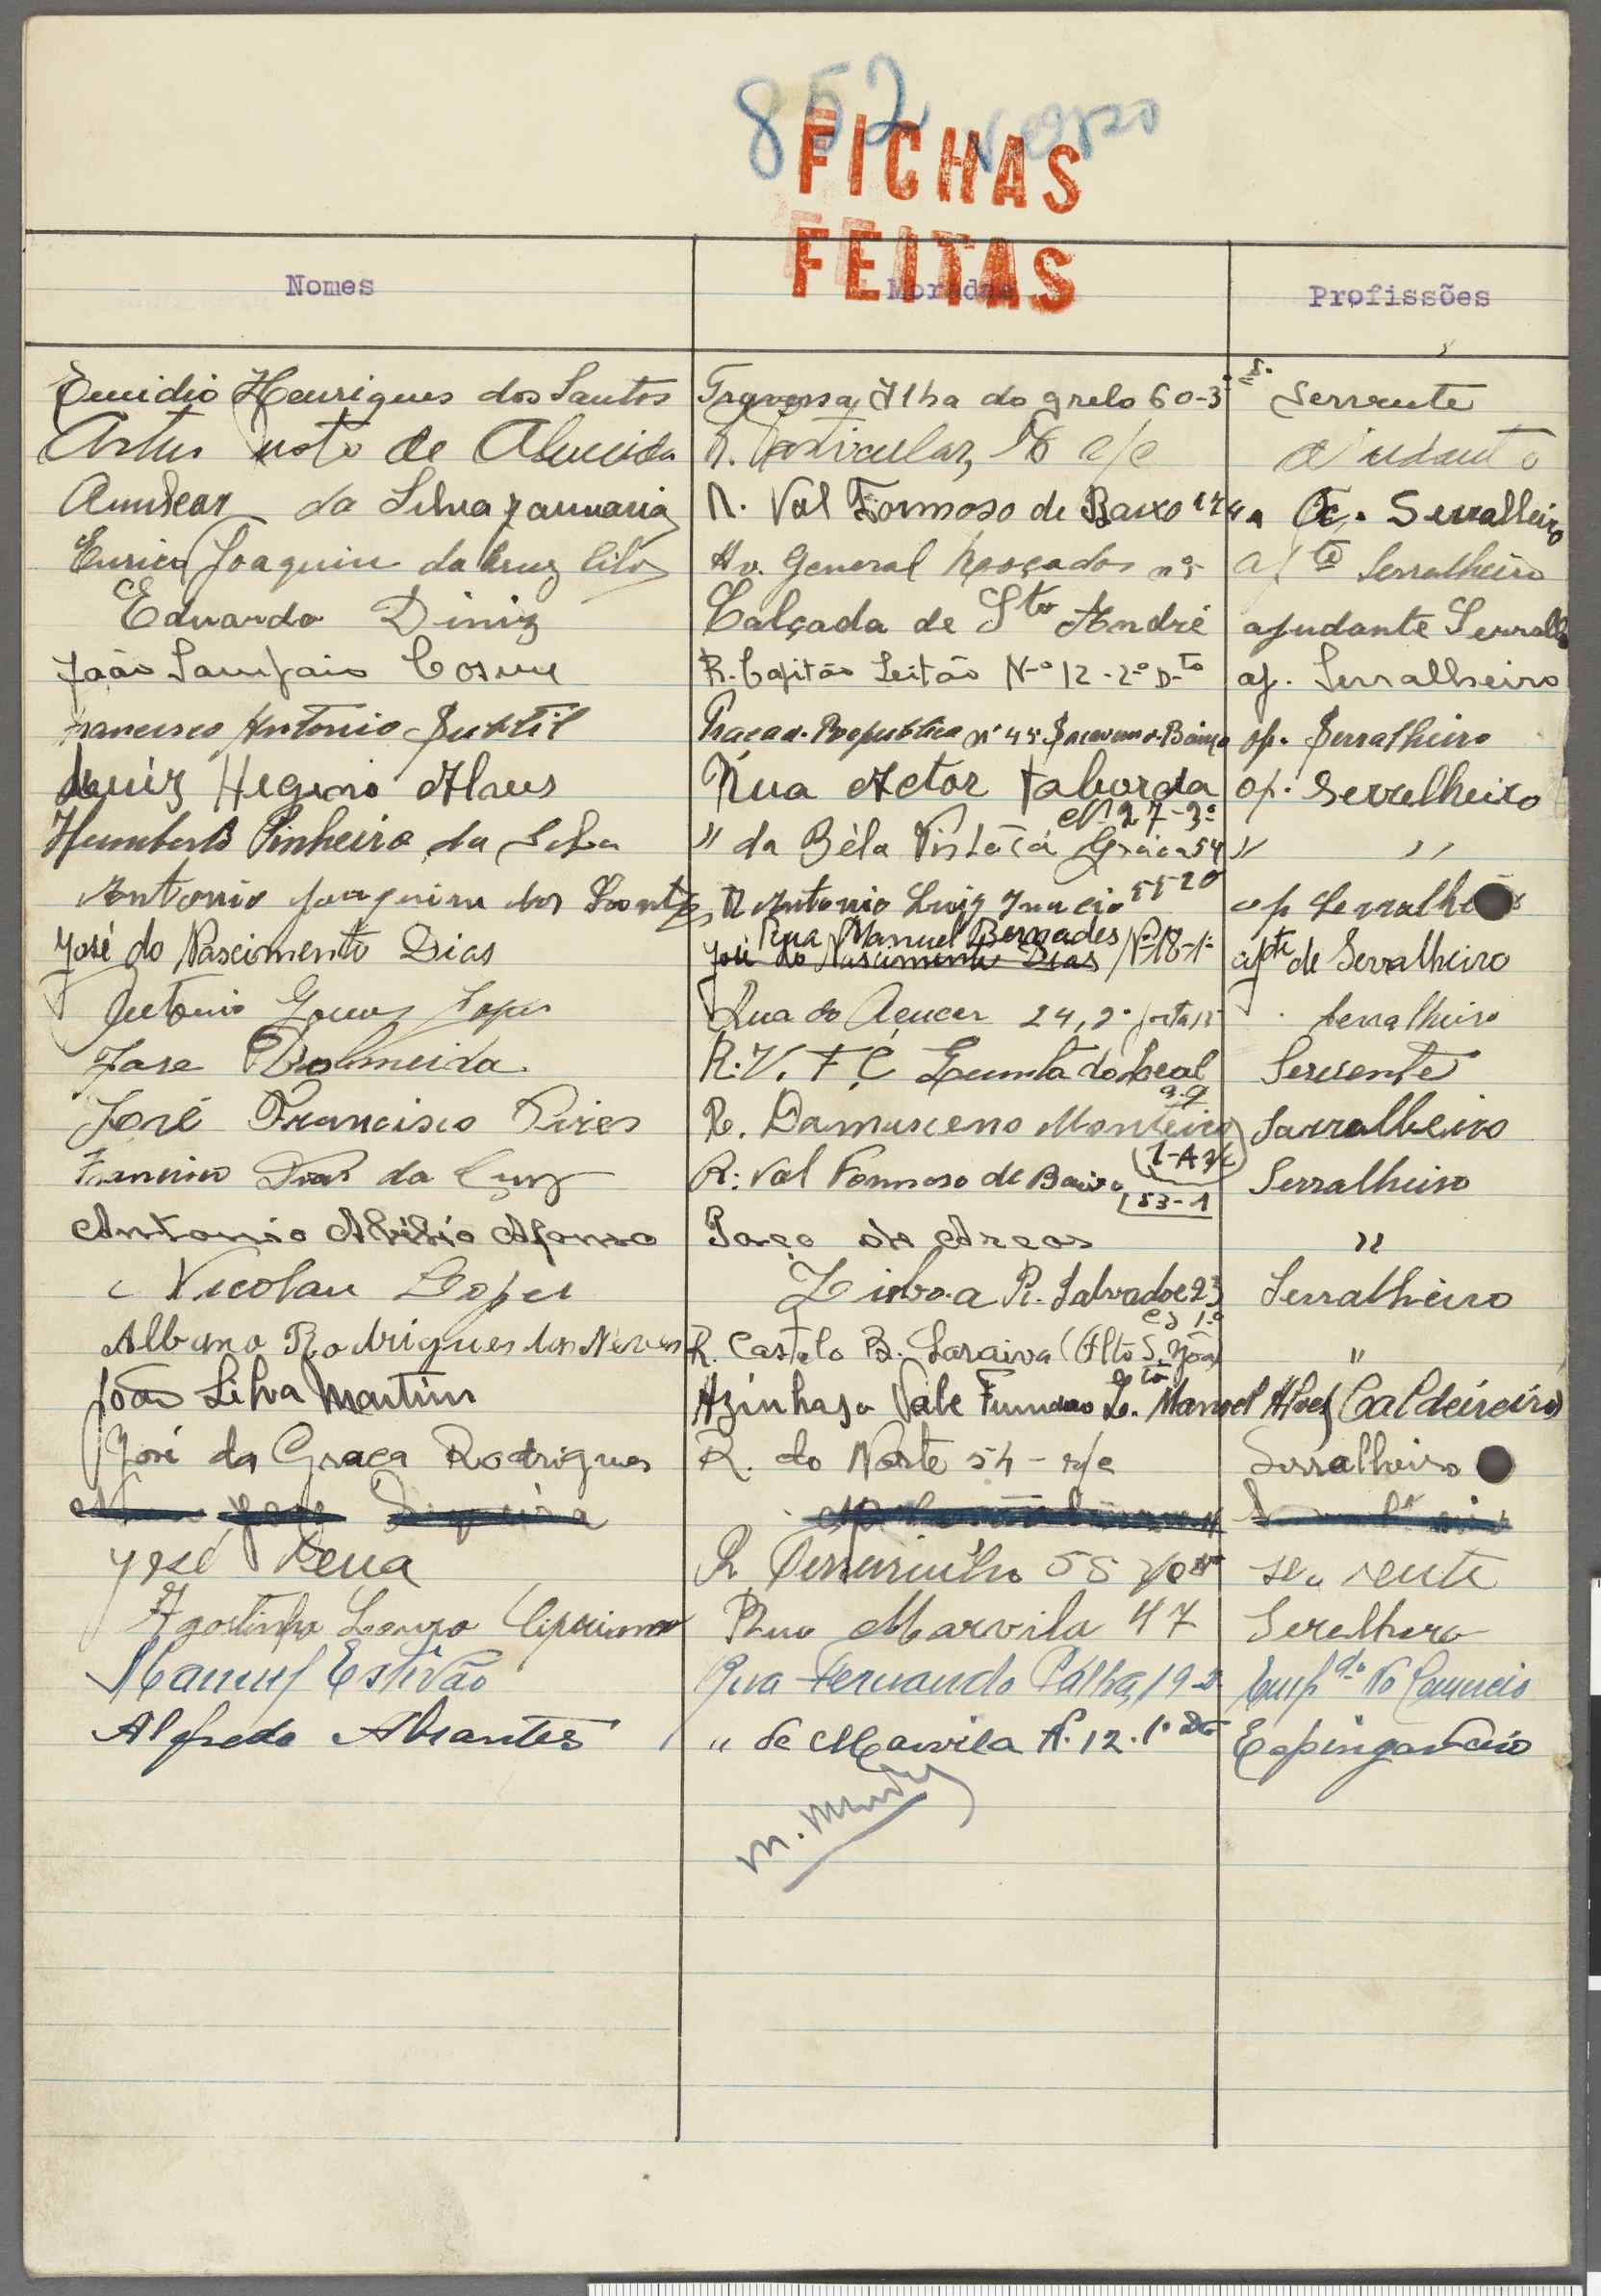 852 Verso
FICHAS
FEITAS
Nomes Moradas Profissões
Emidio Henriques dos Santos Travessa Ilha do grelo 60-3 Servente
Artur de Almeida R. Particular, 16 r/c ajudante
Amilcar da Silva Januaria R. Val Formoso de Baixo 174 Oc. Serralheiro
Eurico Joaquim da Cruz Silva Av. General Roçadas nº 5 ajte Serralheiro
Eduardo Diniz Calçada de Sto André ajudante Serralh
João Sampaio Cosme R. Capitão Leitão Nº 12-2º D.to aj. Serralheiro
Francisco Antonio Subtil Praça da Republica nº 45 op. Serralheiro
Luiz Hegino Alves Rua Actor Taborda op. Serrelheiro
Nº 27-3º
Humberto Pinheiro da Silva " da Béla Vista á Graça 54 " "
Antonio Joaquim dos Santos R Antonio Luiz Inacio op Serralheiro
Rua Manuel Bernades Nº 18-1º
José do Nascimento Dias José do Nascimento Dias ajte de Serralheiro
Antonio Gomes Lopes Rua do Açucar 24, 2º porta 15 Serralheiro
Jose D'Almeida R. V. F C Quinta do Leal Servente
José Francisco Pires R. Damasceno Monteiro Sarralheiro
Francisco Dias da Cruz R. Val Formoso de Baixo 153-1 Serralheiro
Antonio Abilio Afonso Paço de Arcos "
Nicolau Lopes Lisboa R. Salvador 23 Serralheiro
Albano Rodrigues das Neves R. Castelo B. Saraiva (Alto S. João) "
João Silva Martins Azinhaga Vale Fundao Manoel Alves (Caldeireiro)
José da Graça Rodrigues R. do Norte 54 - r/c Serralheiro
José Sena R 55 servente
Agostinho Louro Cipriano Rua Marvila 47 Serelhero
Manuel Estevão Rua Fernando Palha, 19-2 Empdo No Comercio
Alfredo Abrantes " de Marvila N. 12. 1º Dto Espingardeiro